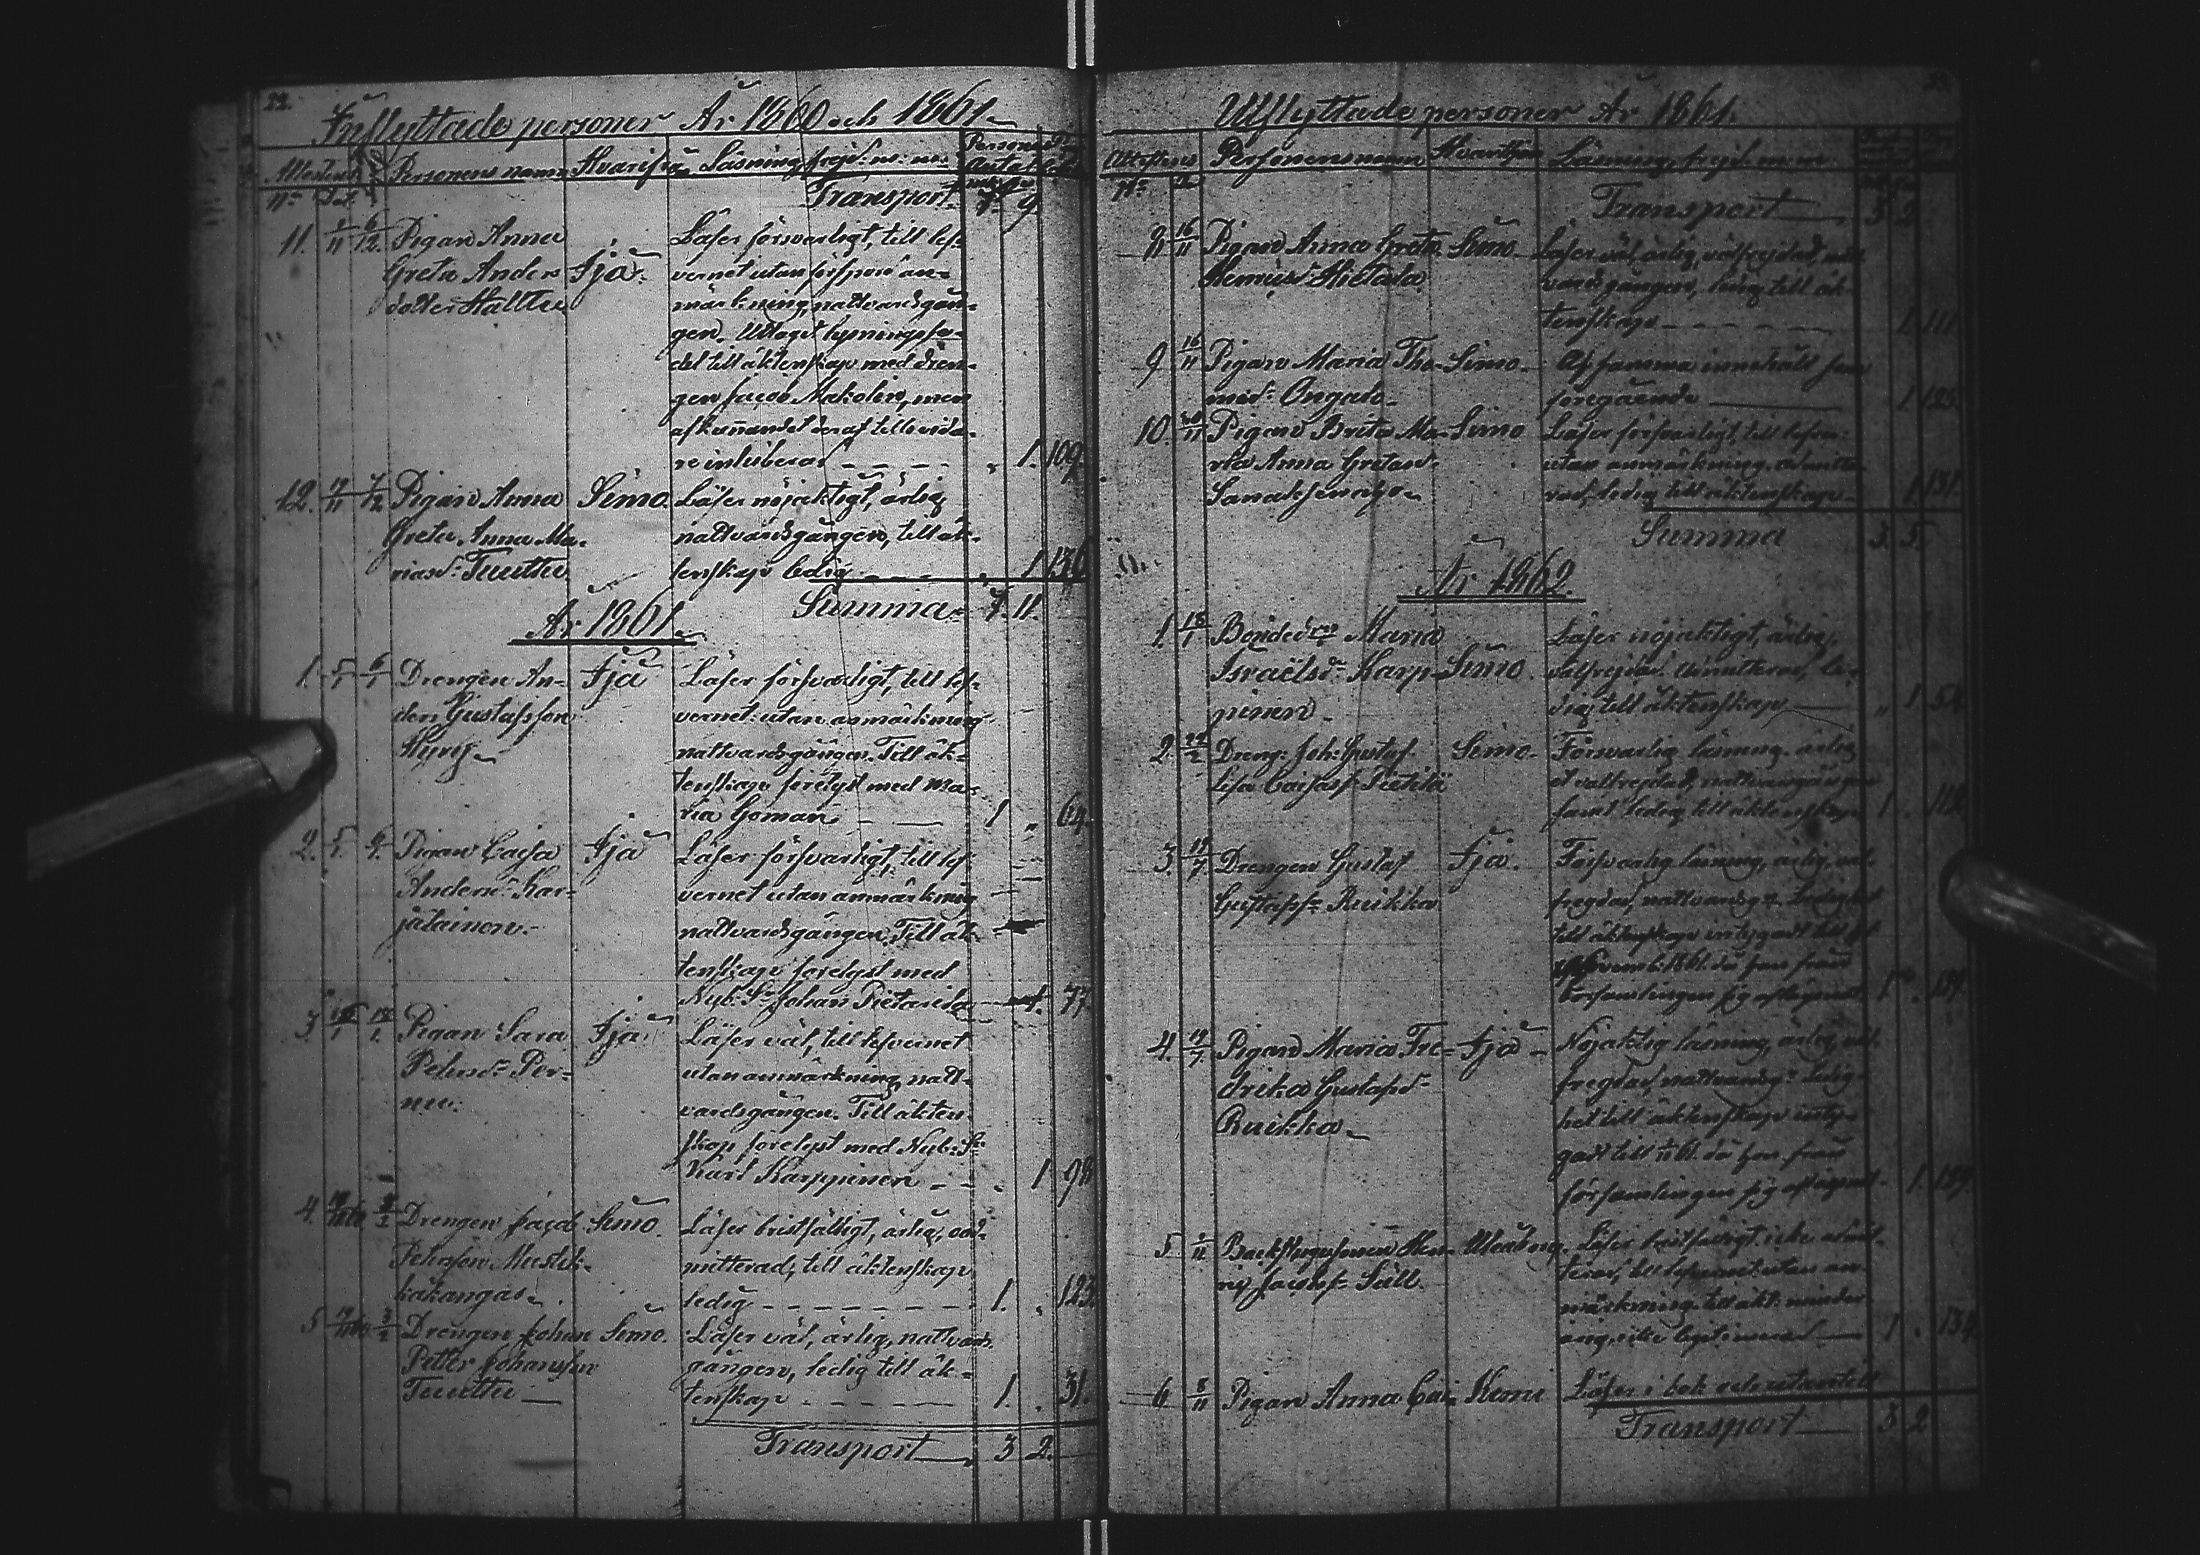 22.
Inflyttade personer År 1860 och 1861.
Personens namn Hvarifrån Läsning, frejd m: m:
Transport 7. 9.
11. 5/11 6/12 Pigan Anna
Greta Anders
dotter Halttu
Ijå.
Läser försvarligt, till lef-
vernet utan förspord an-
märkning, nattvardsgån-
gen. Uttagit lysningsse-
del till äktenskap med dren-
gen Jacob Makolin, men
afkunnandet deraf tillsvida-
re inhiberat 1. 109.
12. Pigan Anna
Greta Anna Ma-
riasd: Tuuttu
Simo.
Läser nöjaktigt, ärlig,
nattvardsgången, till äk-
tenskap ledig 1 136
Summa 7. 11.
År 1861.
1. 5/1 6/1 Drengen An-
ders Gustafsson
Hyry
Ijå
Läser försvarligt, till lef-
vernet utan anmärkning
nattvardsgången. Till äk-
tenskap förelyst med Ma-
ria Goman 1 64.
2. Pigan Cajsa
Andersd: Kar-
jalainen.
Ijå
Läser försvarligt, till lef-
vernet utan anmärkning
nattvardsgången. Till äk-
tenskap förelyst med
Nyb: S: Johan Pietarila 1. 77.
3. Pigan Sara
Petersd: Per-
nu.
Ijå
Läser väl, till lefvernet
utan anmärkning, natt-
vardsgången. Till äkten-
skap förelyst med Nyb: S:
Karl Karppinen 1 98
4. Drengen Jacob
Petersson Mustik-
kakangas.
Simo.
Läser bristfälligt, ärlig, ad-
mitterad, till äktenskap
ledig 1. 123.
5 Drengen Johan
Petter Johansson
Tuuttu
Simo.
Läser väl, ärlig, nattvards-
gången, ledig till äk-
tenskap 1. 31.
Transport 3 2.
Utflyttade personer År 1861.
Personens namn Hvarthän Läsning, frejd m: m:
Transport 3 2
8 16/11 Pigan Anna Greta
Henriksd: Hietala
Simo
Läser väl, ärlig, välfrejdad, natt-
vardsgången, ledig till äk-
tenskap 1 111
9 16/11 Pigan Maria Tho-
masd: Ongalo
Simo.
Af samma innehåll som
föregående 1 125.
10. Pigan Brita Ma-
ria Anna Gretasd:
Sanaksenaho
Simo
Läser försvarligt, till lefver:
utan anmärkning, admitte-
rad, ledig till äktenskap 1 131.
Summa 3. 5.
År 1862.
1. 18/1 Maria
Israelsd: Karp-
pinen
Simo.
Läser nöjaktigt, ärlig,
välfrejdad. Admitterad, le-
dig till äktenskap 1
2. Dreng: Joh: Gustaf
Lisa Caisass: Pietilä
Simo.
Försvarlig läsning, ärlig
o. välfrejdad, nattvardsgången
samt ledig till äktenskap 1
3. 19/7 Drengen Gustaf
Gustafss: Ruikka
Ijå.
Försvarlig läsning, ärlig, väl-
frejdad, nattvardsg: Ledighet
till äktenskap intygadt till
November 1861. då han från
församlingen sig aflägsnat 1
4. 19/7 Pigan Maria Fre-
drika Gustafsd:
Ruikka
Ijå
Nöjaktig läsning, ärlig, väl-
frejdad, nattvardsg: Ledig-
het till äktenskap inty-
gadt till då hon från
församlingen sig aflägsnat 1
5 Backstugusonen Hen-
rik Jacobss: Säll
Uleåborg.
Läser bristfälligt, icke admit-
terad, till lefvernet utan an-
märkning, till äkt: minder-
årig, 1
6 8/11 Pigan Anna Cai-
Kemi
Läser i bok och utantill
Transport 3 2